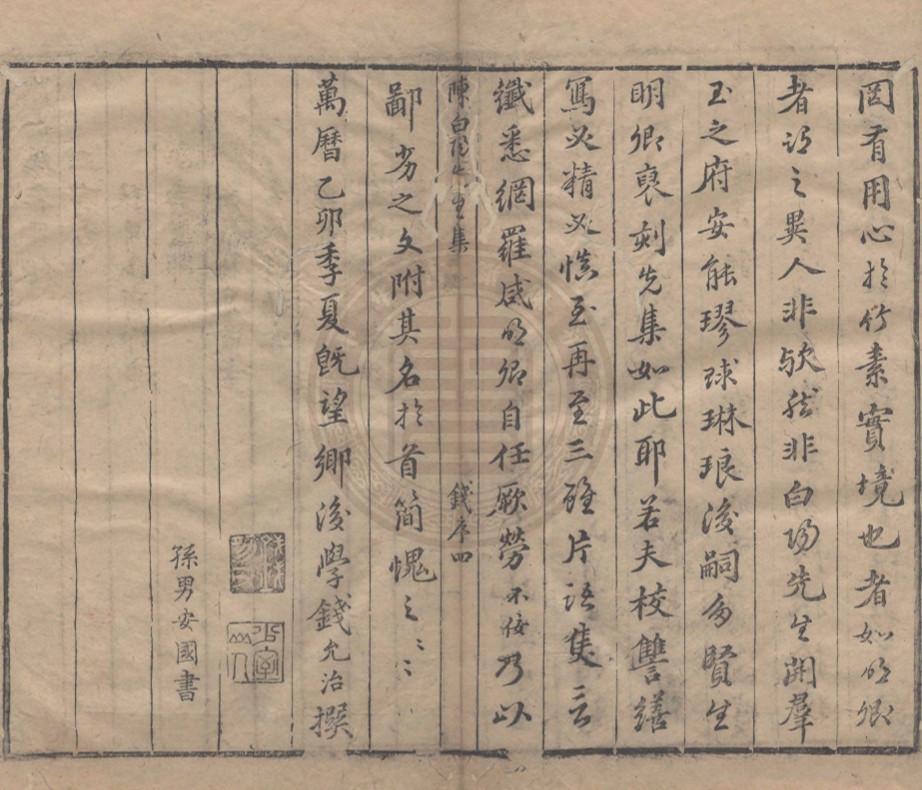 罔有用心於竹素實境也者如明卿
者謂之異人非歟然非白陽先生開羣
玉之府安能璆球琳琅後嗣多賢生
明卿裒刻先集如此耶若夫校讐繕
寫必精必慎至再至三雖片語隻言
纖悉網羅咸明卿自任厥勞不佞乃以
陳白陽先生集 錢序四
鄙劣之文附其名於首簡愧之〻〻
萬曆乙卯季夏既望鄉後學錢允治撰
孫男安國書